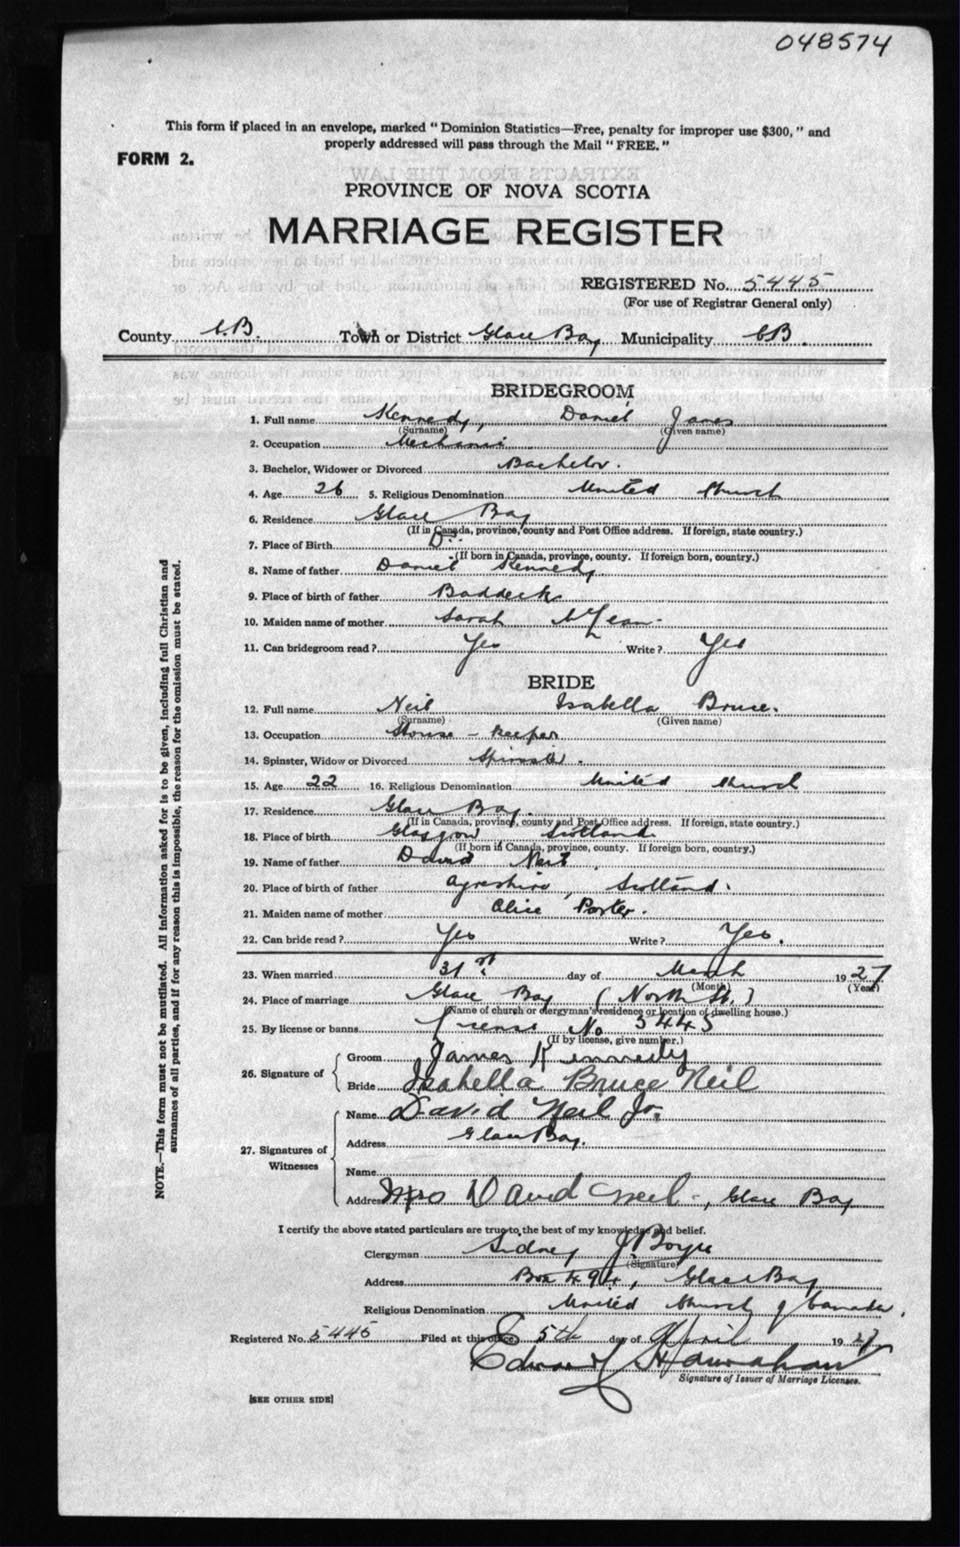 048574
This form if placed in an envelope, marked "Dominion Statistics—Free, penalty for improper use $300," and
properly addressed will pass through the Mail "FREE."
FORM 2.
PROVINCE OF NOVA SCOTIA
MARRIAGE REGISTER
REGISTERED No. 5445
(For use of Registrar General only)
County C.B. Town or District Glace Bay Municipality CB.
BRIDEGROOM
1. Full name Kennedy, Daniel James
(Surname) (Given name)
2. Occupation Mechanic
3. Bachelor, Widower or Divorced Bachelor.
4. Age 26 5. Religious Denomination United Church
6. Residence Glace Bay
(If in Canada, province, county and Post Office address. If foreign, state country.)
7. Place of Birth Do.
(If born in Canada, province, county. If foreign born, country.)
8. Name of father Daniel Kennedy
9. Place of birth of father Baddeck
10. Maiden name of mother Sarah
11. Can bridegroom read? Yes Write? Yes
BRIDE
12. Full name Neil Isabella Bruce.
(Surname) (Given name)
13. Occupation House-keeper
14. Spinster, Widow or Divorced Spinster.
15. Age 22 16. Religious Denomination United Church
17. Residence Glace Bay.
(If in Canada, province, county and Post Office address. If foreign, state country.)
18. Place of birth Glasgow Scotland
(If born in Canada, province, county. If foreign born, country.)
19. Name of father David Neil
20. Place of birth of father Ayreshire, Scotland.
21. Maiden name of mother Alice Porter.
22. Can bride read? Yes Write? Yes.
23. When married 31st day of March 1927
(Month) (Year)
24. Place of marriage Glace Bay (North St.)
(Name of church or clergyman's residence or location of dwelling house.)
25. By license or banns License No 5445
(If by license, give number.)
26. Signature of
Groom James Kennedy
Bride Isabella Bruce Neil
27. Signatures of Witnesses
Name David Neil Jr.
Address Glace Bay.
Name
Address Mrs David Neil, Glace Bay
I certify the above stated particulars are true to the best of my knowledge and belief.
Clergyman Sidney J. Boyce
(Signature)
Address Box 494, Glace Bay
Religious Denomination United Church of Canada.
Registered No. 5445 Filed at this office 5th day of April 1927
Edward Hanrahan
Signature of Issuer of Marriage Licenses.
[SEE OTHER SIDE]
NOTE.—This form must not be mutilated. All information asked for is to be given, including full Christian and
surnames of all parties, and if for any reason this is impossible, the reason for the omission must be stated.